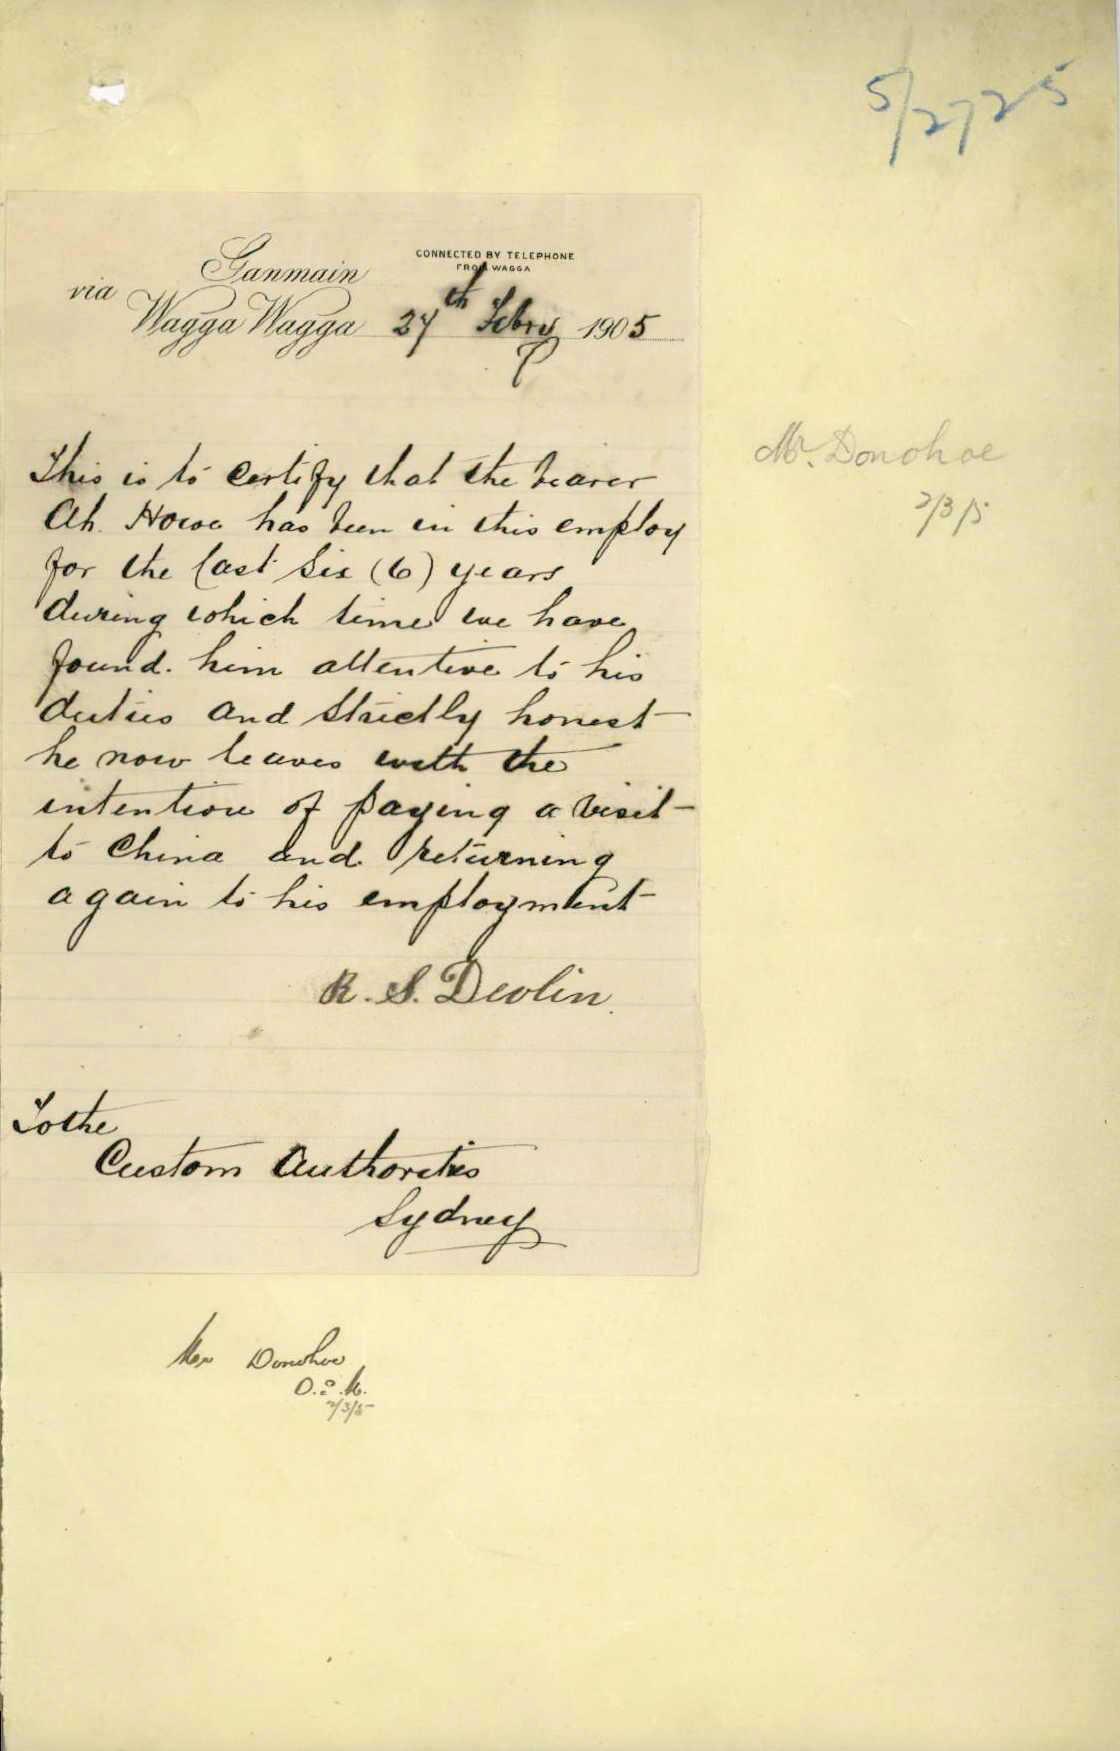 5/2725
CONNECTED BY TELEPHONE
FROM WAGGA
Ganmain
via
Wagga Wagga 27th Febry 1905
This is to certify that the bearer
Ah. Howe has been in this employ
for the last six (6) years
during which time we have
found. him attentive to his
duties and strictly honest
he now leaves with the
intention of paying a visit
to China and returning
again to his employment
R. S. Devlin.
To the
Custom Authorities
Sydney
Mr. Donohoe
2/3/5
Donohoe
2/3/5